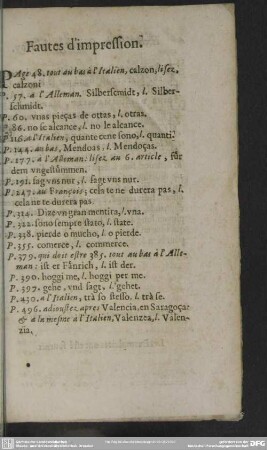 Fautes d'impression.
PAge 48. tout au bas à l'Italien, calzon, lisez,
calzoni
P. 57. a l'Alleman. Silberscmidt, l. Silber-
schmidt.
P. 60. vnas pieças de ottas, l. otras.
P. 86. no ie alcance, l. no le alcance.
à l'Italien, quante cene sono, l. quanti.
P. 144. au bas, Mendoas l. Mendoças.
P. 177. a l'Aleman: lisez au 6. article, für
dem vngestümmen.
P. 191. sag vns nur, l. sagt vns nur.
P. 247. au François; cela te ne durera pas, l.
cela ne te durera pas.
P. 314. Dize vn gran mentira, l. vna.
P. 322. sono sempre stato, l. state.
P. 338. pierde o mucho, l. o pierde.
P. 355. comerce, l. commerce.
P. 379. qui doit estre 385. tout au bas à l'Alle-
man: ist er Fänrich, l. ist der.
P. 390. hoggi me, l. hoggi per me.
P. 397. gehe, vnd sagt, l. gehet.
P. 450. a l'Italien, trà so stesso. l. trà se.
P. 496. adioustez apres Valencia, en Saragoça:
& a la mesme à l'Italien, Valenzea, l. Valen-
zia.